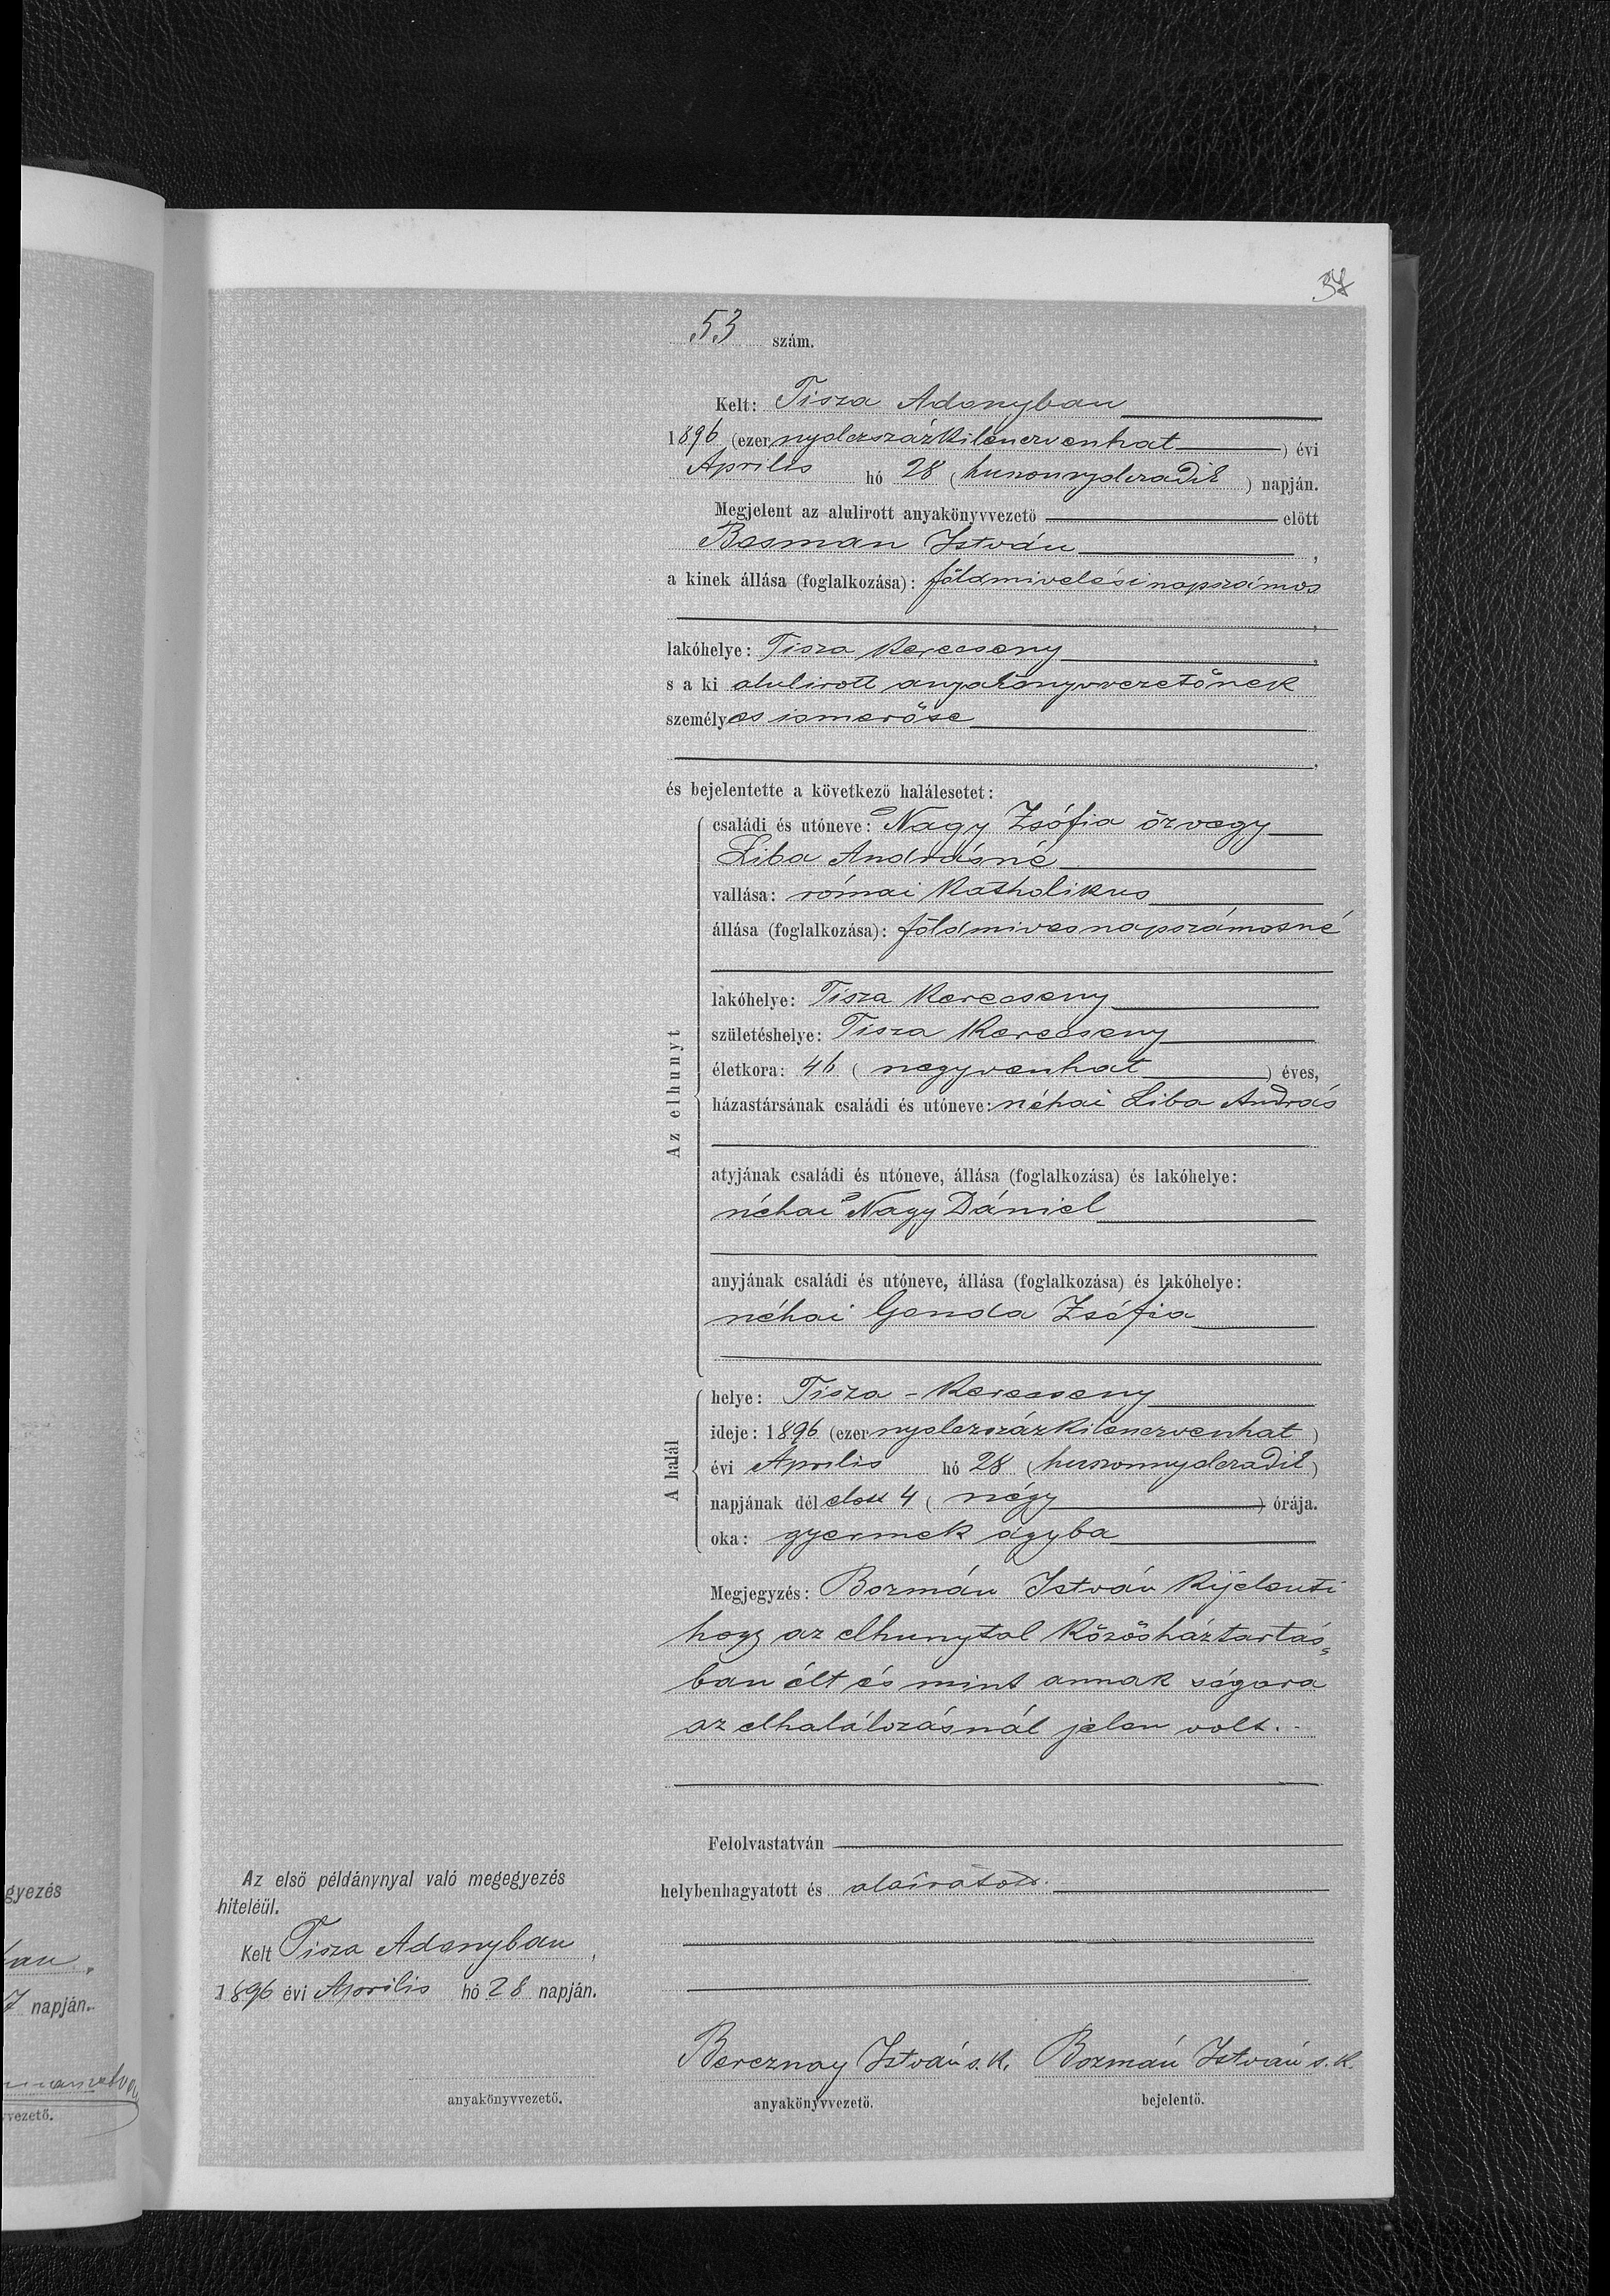 37
53 szám.
Kelt: Tisza Adonyban
1896 (ezernyolczszázkilenczvenhat) évi
Április hó 28 (huszonnyolczadik) napján.
Megjelent az alulirott anyakönyvvezető előtt
Bosman István,
a kinek állása (foglalkozása): földmivelési napszámos
,
lakóhelye: Tisza Kerecseny,
s a ki alulirott anyakönyvvezetőnek
személyes ismerőse
,
és bejelentette a következő halálesetet:
Az elhunyt
családi és utóneve: Nagy Zsófia özvegy
Liba Andrásné
vallása: római katholikus
állása (foglalkozása): földmives napszámosné
lakóhelye: Tisza Kerecseny
születéshelye: Tisza Kerecseny
életkora: 46 (negyvenhat) éves,
házastársának családi és utóneve: néhai Liba András
atyjának családi és utóneve, állása (foglalkozása) és lakóhelye:
néhai Nagy Dániel
anyjának családi és utóneve, állása (foglalkozása) és lakóhelye:
néhai Gonda Zsófia
A halál
helye: Tisza-Kerecseny
ideje: 1896 (ezernyolczszázkilenczvenhat)
évi Április hó 28 (huszonnyolczadik)
napjának dél előtt 4 (négy) órája.
oka: gyermek ágyba
Megjegyzés: Bozmán István kijelenti
hogy az elhunytal közös háztartás=
ban élt és mint annak sógora
az elhalálozásnál jelen volt.-
Felolvastatván
helybenhagyatott és aláiratott.
Bereznay István s.k. Bozmán István s.k.
anyakönyvvezető. bejelentő.
Az első példánynyal való megegyezés
hiteléül.
Kelt Tisza Adonyban,
1896 évi Április hó 28 napján.
anyakönyvvezető.
gyezés
ban.
7 napján.
vvezető.